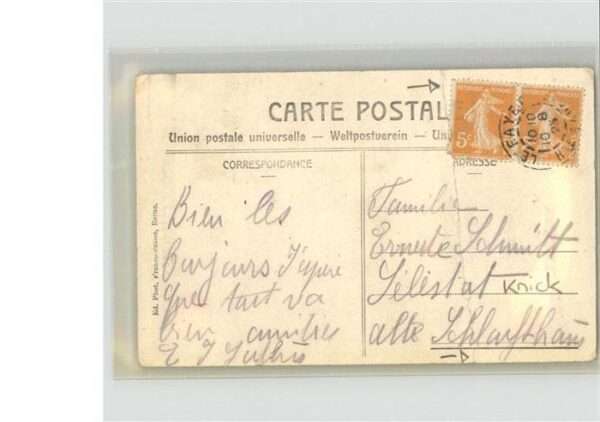 CARTE POSTAL
Union postale universelle — Weltpostverein — Un
CORRESPONDANCE
ADRESSE
5c
Bien les
Bonjours J'espère
que tout va
bien amitiés
Familie
Ernest Schmitt
Sélestat Knick
alte Schlachthaus